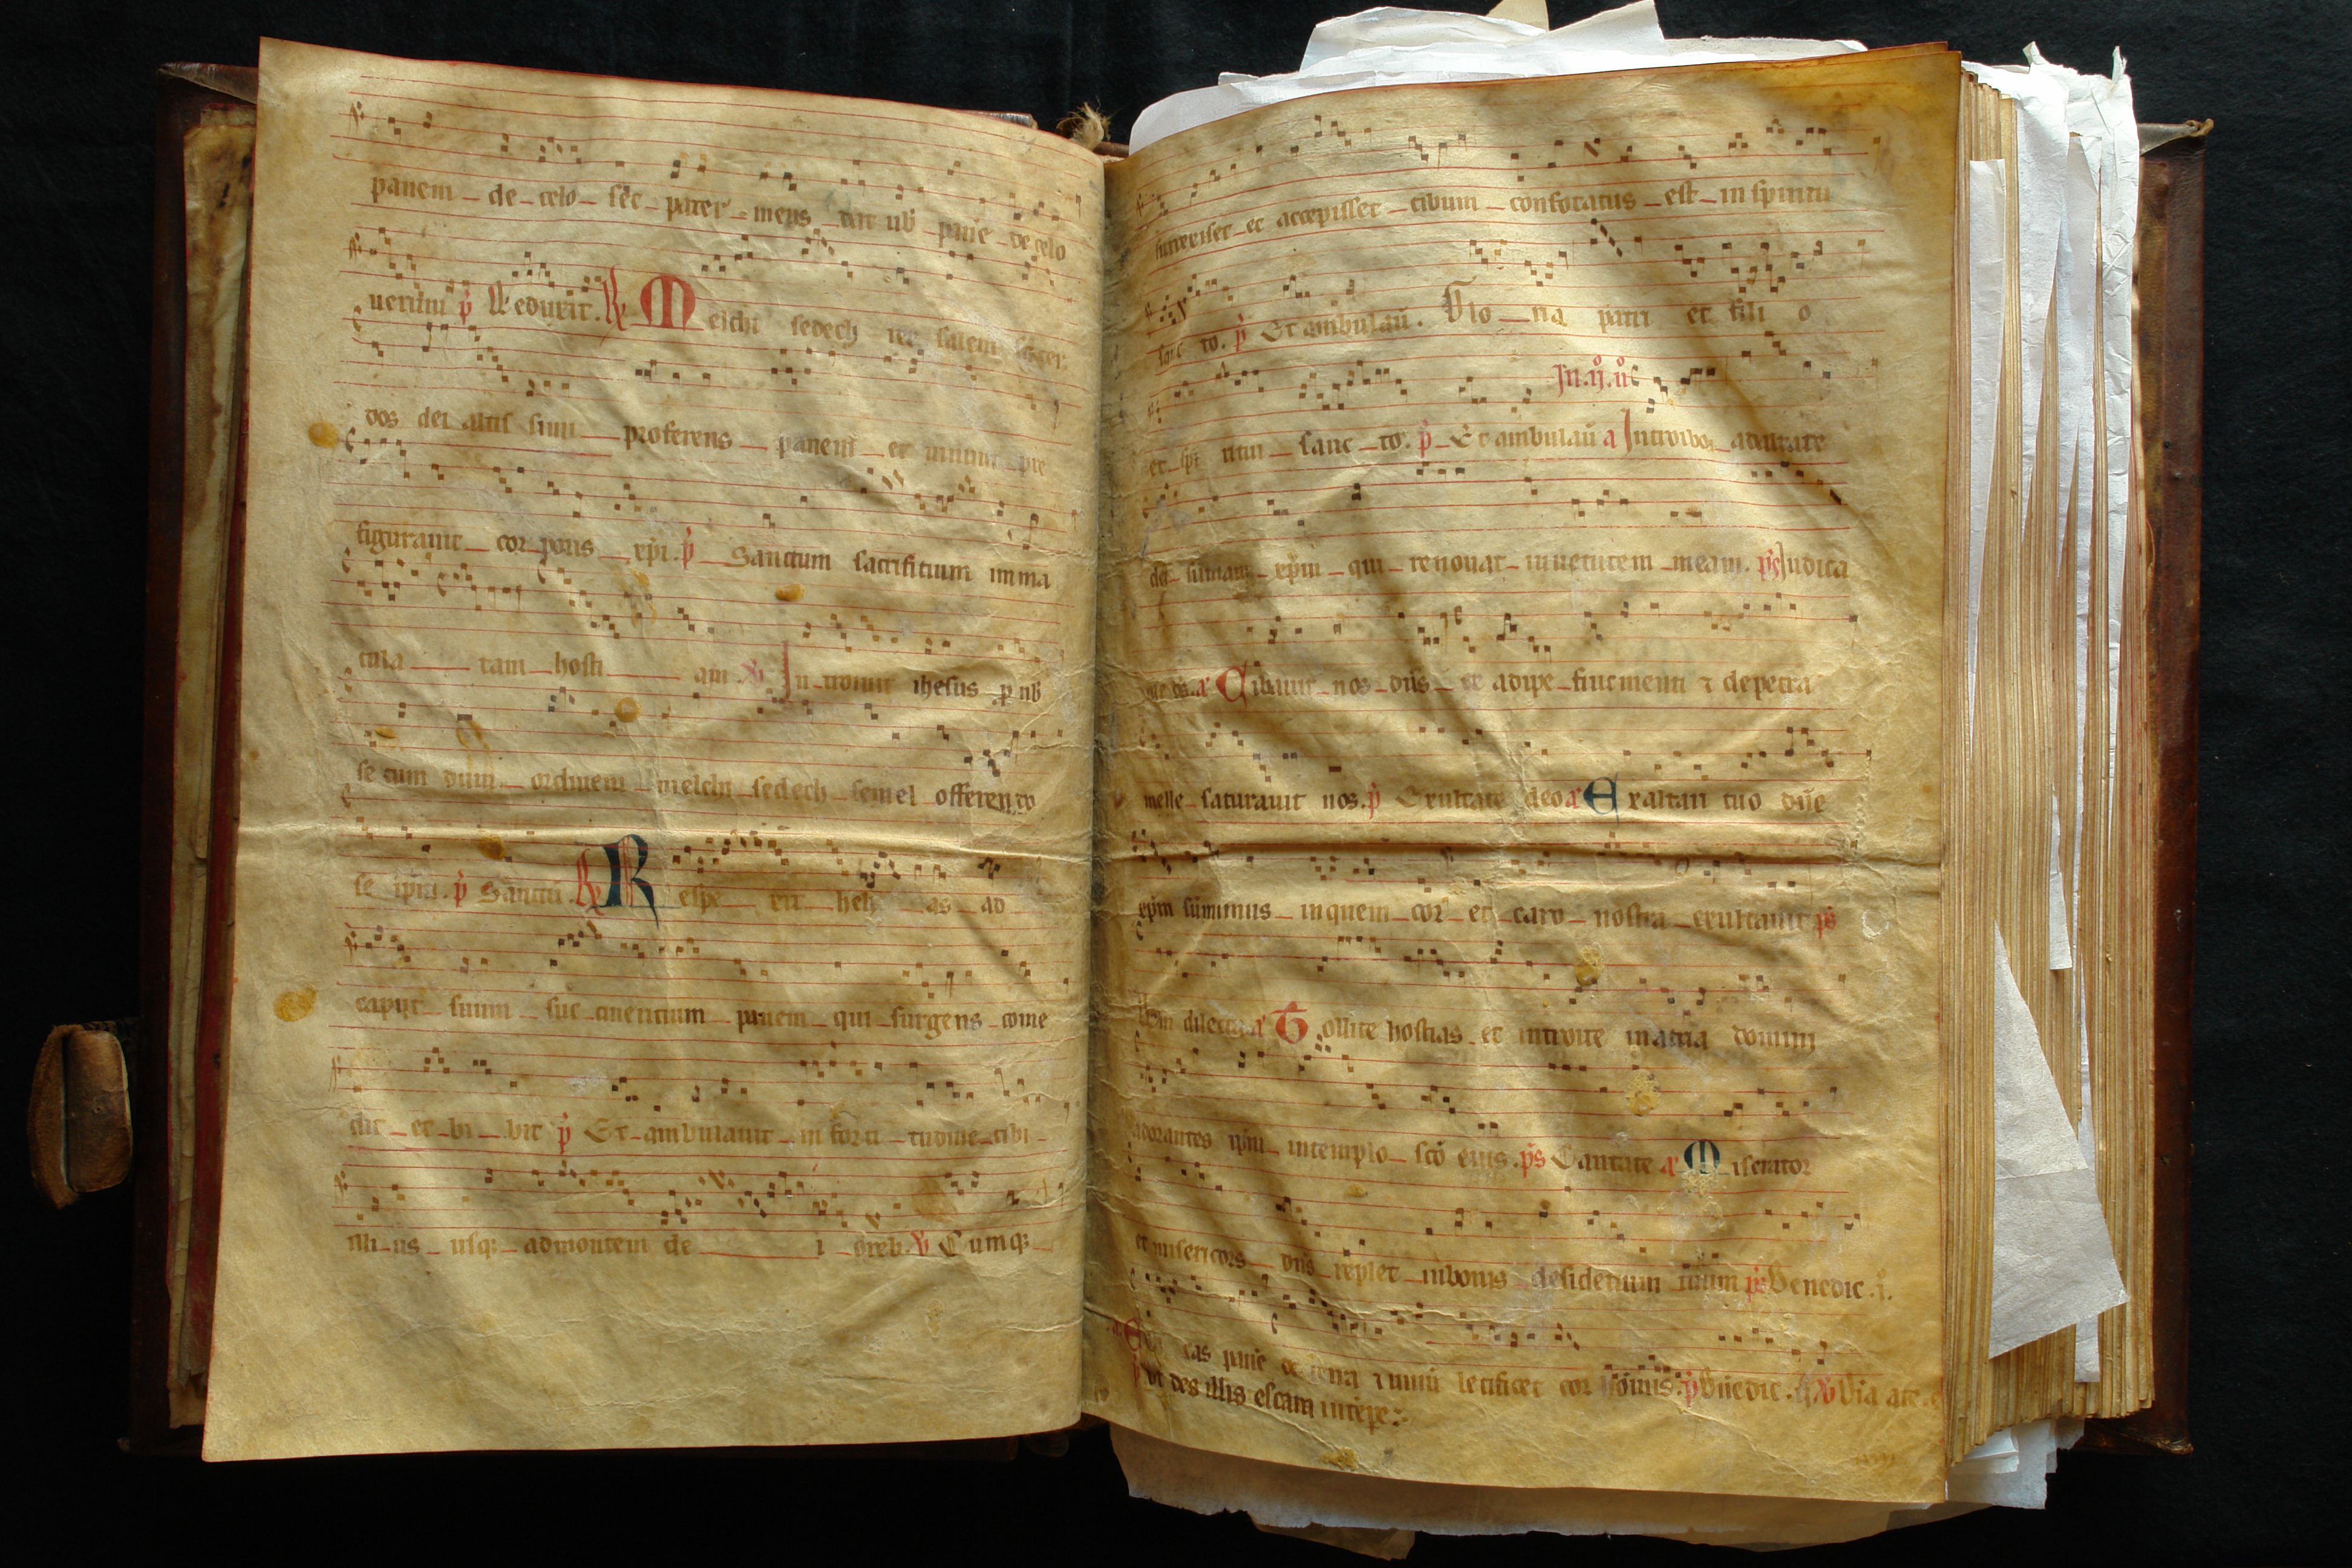 panem de celo sed pater meus dat uob panē de celo
uerum p̄ Et eduxit. R Melchi sedech rex salem sacer
dos dei altis simi proferens panem et uinum pre
figurauit cor poris xp̄i. p̄ Sanctum sacrificium imma
cula tam hosti am. V̄ In troiuit ihesus p nob
se cum dum ordinem melchi sedech semel offeren do
se ip̄m. p̄ Sanctū. R Respe xit hely as ad
caput suum suc cinericium panem qui surgens come
dit et bi bit p̄ Et ambulauit in forti tudine cibi
illi us usq; ad montem de i oreb. V̄ Cumq;
surrexiset et accepisset cibum confortatus est in spiritu
sanc to. p̄ Et ambulaū. Glo ria patri et fili o
In .ij. n̊
et spi ritui sanc to. p̄ Et ambulaū a Introibo ad altare
dei sumam xp̄m qui renouat iuuentutem meam. p̄s Judica
me ds̄. a Cibauit nos dn̄s ex adipe frumenti ⁊ de petra
melle saturauit nos. p̄ Exultate deo a Ex altari tuo dn̄e
xp̄m sumimus in quem cor et caro nostra exultauit p̄s
Qm̄ dilecta a Tollite hostias et introite in atria domini
adorantes ip̄m in templo sc̄o eius. p̄s Cantate a Miserator
et misericors dn̄s replet in bonis desiderium tuum p̄s Benedic .i̊.
a Edu cas panē de terra ⁊ uinū letificet cor hōinis. p̄ Bn̄edic. ij V̄ Via ate
p̄ ut des illis escam in tēpe